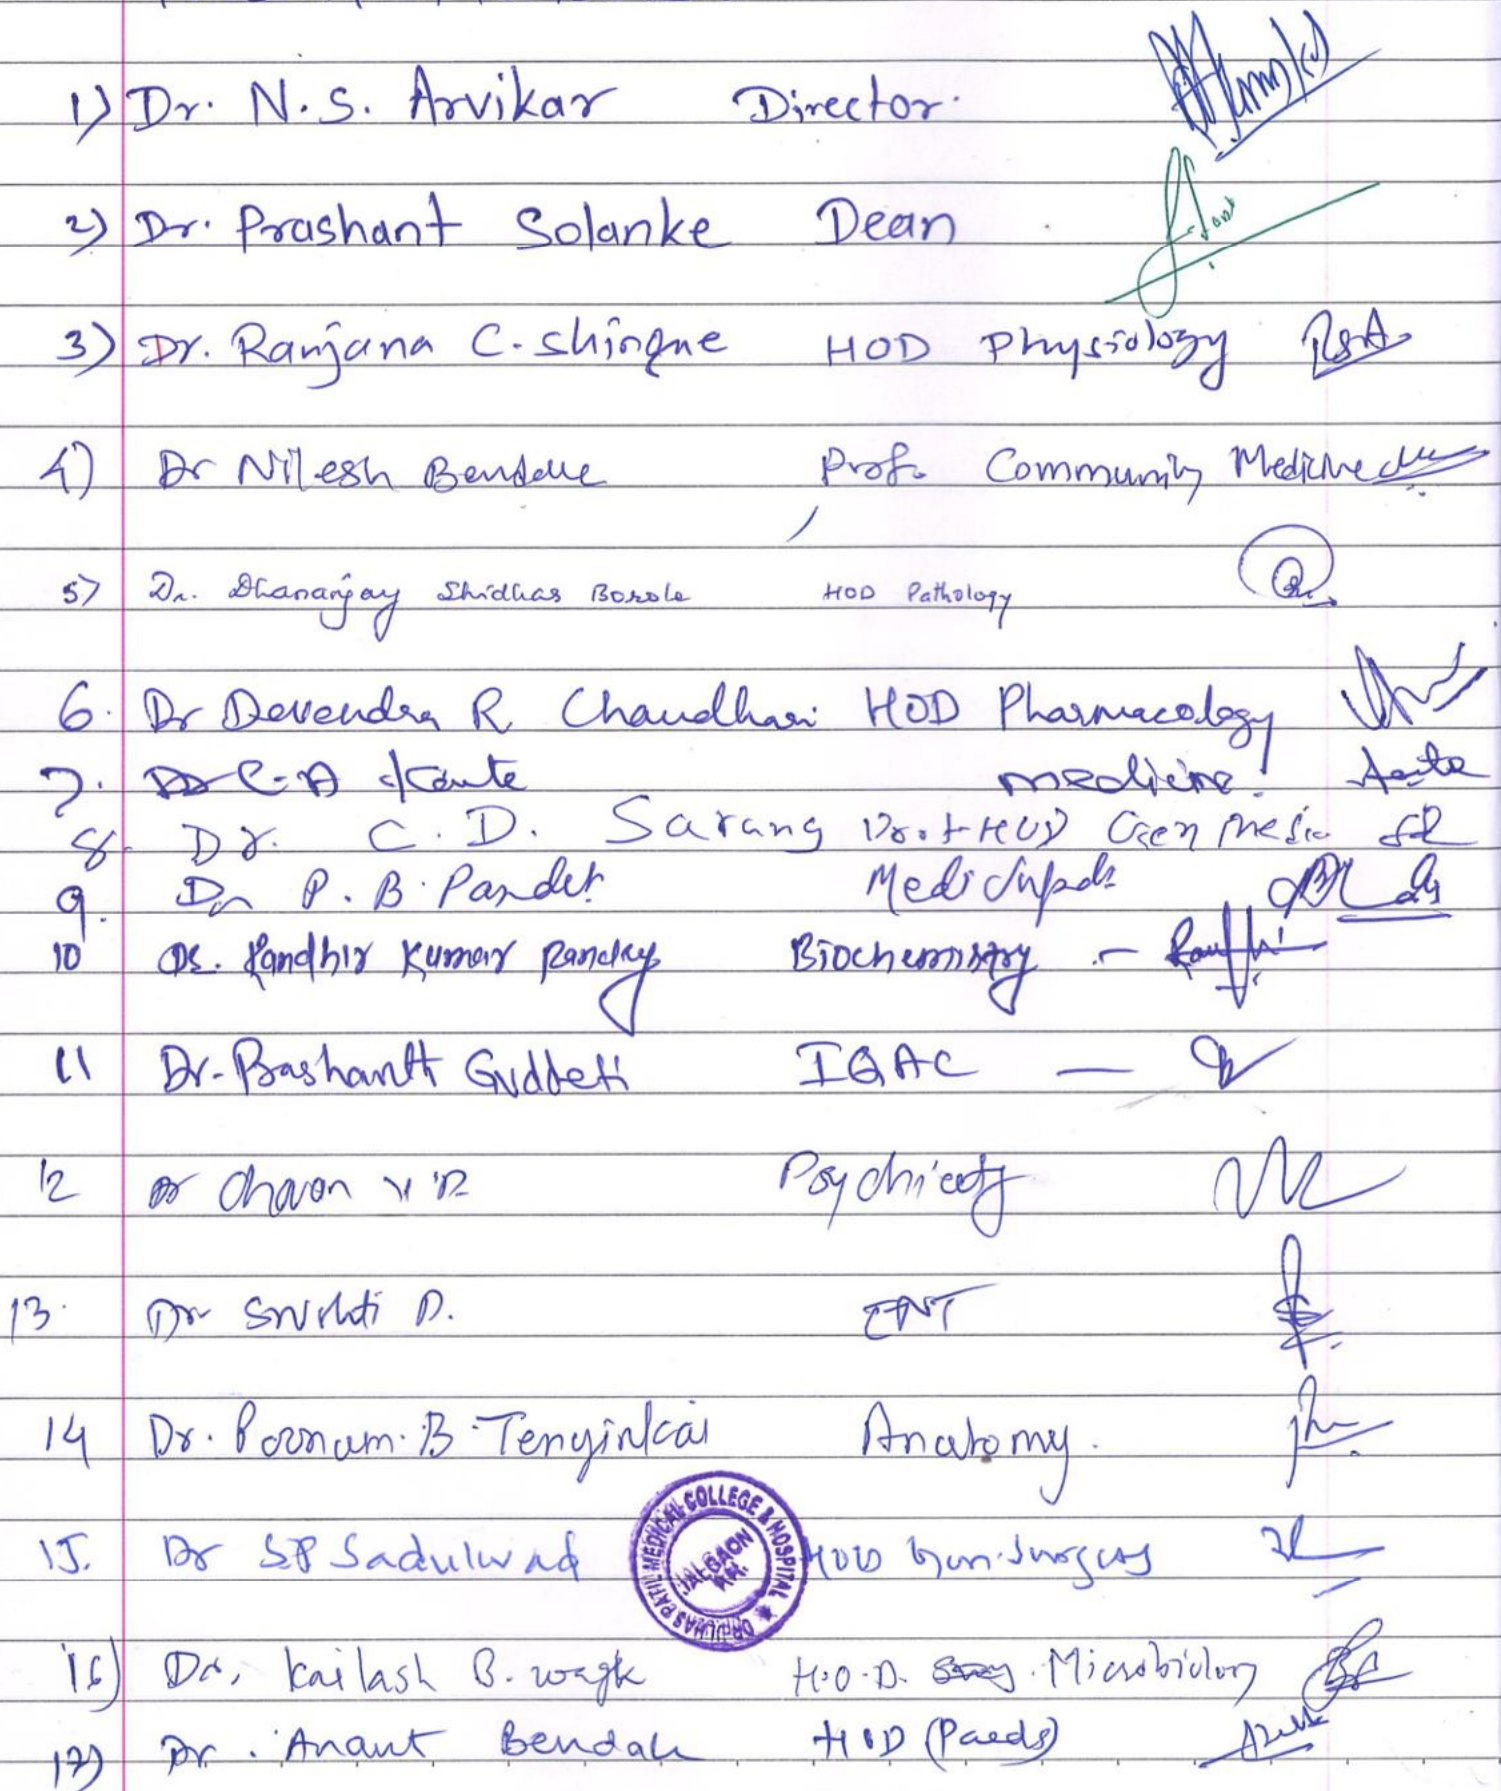 1) Dr. N.S. Arvikar Director.
2) Dr. Prashant Solanke Dean
3) Dr. Ranjana C. Shingne HOD Physiology
4) Dr Nilesh Bendale Prof. Community Medicine
5) Dr. Dhananjay Shridhar Borole HOD Pathology
6. Dr Devendra R Chaudhari HOD Pharmacology
7. Dr C-A medicine.
8. Dr. C. D. Sarang Prof + HOD Gen Medi
9. Dr P. B. Pandit
10 Dr. Randhir Kumar Pandey Biochemistry -
11 Dr. Prashanth Guddeti IQAC —
12 Dr Chavan Psychiatry
13. Dr Srishti D. ENT
14 Dr. Poonam. B. Tenginkai Anatomy.
15. Dr SP HOD Gen. Surgery
DR. ULHAS PATIL MEDICAL COLLEGE & HOSPITAL
JALGAON KH.
16) Dr. Kailash B. Wagh H.O.D. Microbiology
17) Dr. Anant Bendale HOD (Paeds)